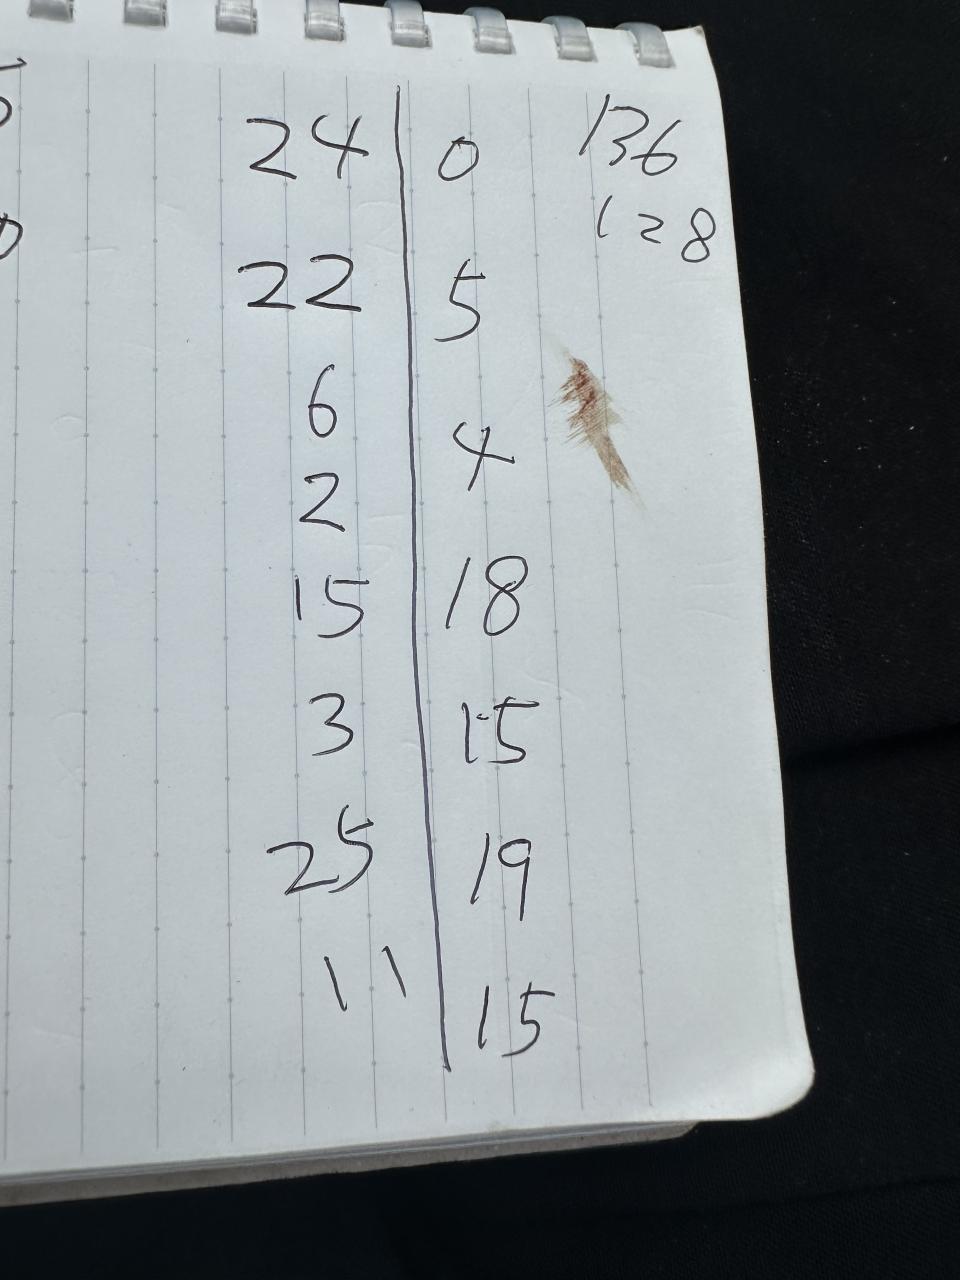 24 0 136
128
22 5
6
4
2
15 18
3 15
25 19
11 15